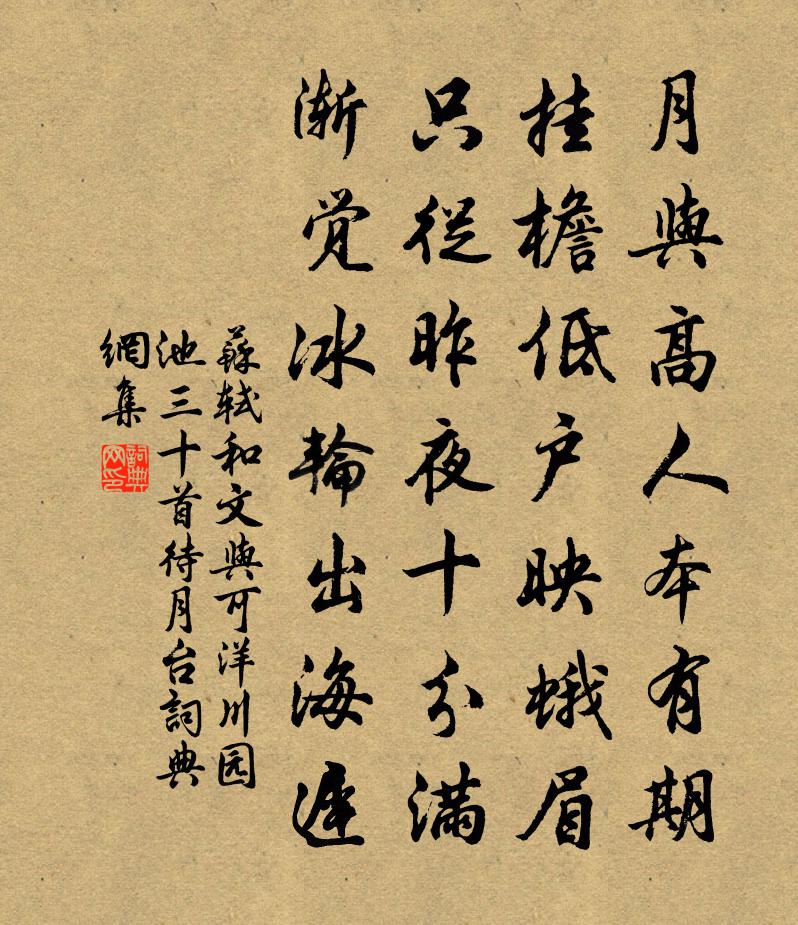 月與高人本有期
挂檐低户映蛾眉
只從昨夜十分滿
渐觉冰輪出海遲
蘇轼和文與可洋川园
池三十首待月台詞典
網集
詞典
网印